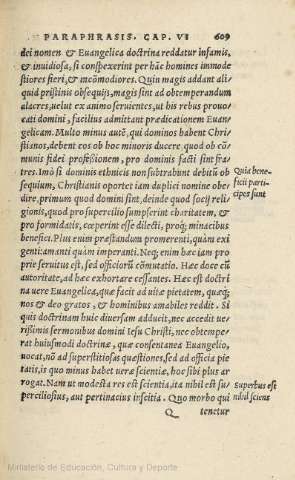 PARAPHRASIS. CAP. VI 609
dei nomen & Euangelica doctrina reddatur infamis,
& inuidiosa, si conspexerint per hãc homines immode
stiores fieri, & incõmodiores. Quin magis addant ali-
quid pristinis obsequijs, magis sint ad obtemperandum
alacres, uelut ex animo seruientes, ut his rebus prouo-
cati domini, facilius admittant prædicationem Euan-
gelicam. Multo minus autẽ, qui dominos habent Chri-
stianos, debent eos ob hoc minoris ducere, quod ob cõ-
munis fidei professionem, pro dominis facti sint fra-
tres. Imò si dominis ethnicis non subtrahunt debitũ ob
sequium, Christianis oportet iam duplici nomine obe-
dire, primum quod domini sint, deinde quod socij reli-
gionis, quod pro supercilio sumpserint charitatem, &
pro formidatis, cœperint esse dilecti, proq́; minacibus
benefici. Plus enim præstandum promerenti, quàm exi
genti: amanti quàm imperanti. Neq; enim hæc iam pro
prie seruitus est, sed officiorũ cõmutatio. Hæc doce cũ
autoritate, ad hæc exhortare cessantes. Hæc est doctri
na uere Euangelica, quæ facit ad uitæ pietatem, quæq́;
nos & deo gratos, & hominibus amabiles reddit. Si
quis doctrinam huic diuersam adducit, nec accedit ue-
rissimis sermonibus domini Iesu Christi, nec obtempe-
rat huiusmodi doctrinæ, quæ consentanea Euangelio,
uocat, nõ ad superstitiosas quæstiones, sed ad officia pie
tatis, is quo minus habet ueræ scientiæ, hoc sibi plus ar
rogat. Nam ut modesta res est scientia, ita nihil est su-
perciliosius, aut pertinacius inscitia. Quo morbo qui
Q tenetur
Quia bene-
ficii parti-
cipes sunt
Superbus est
nihil sciens
Ministerio de Educación, Cultura y Deporte